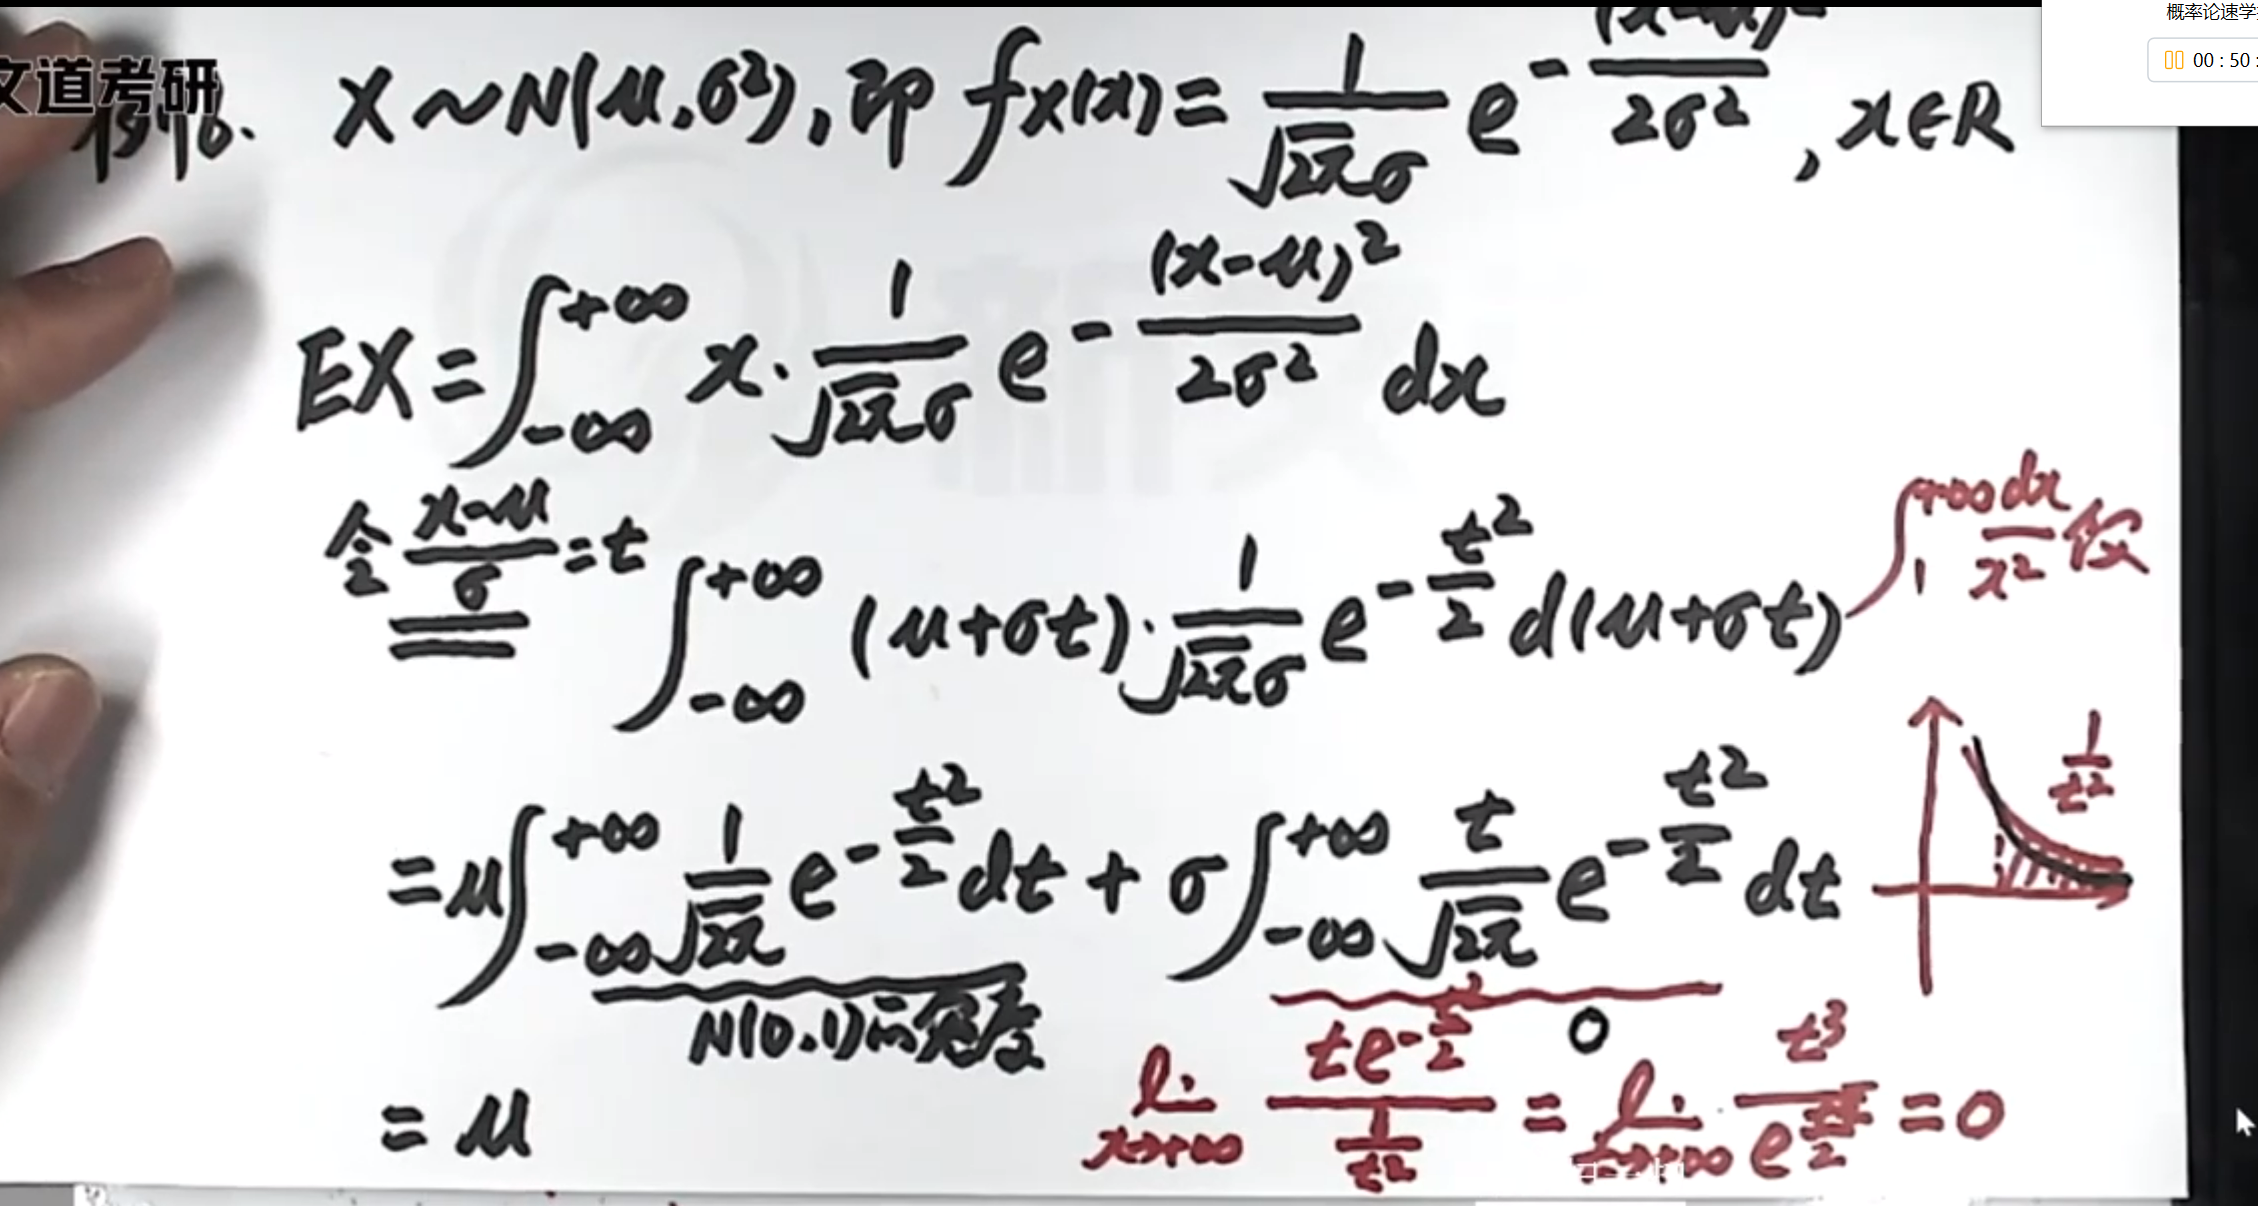 概率论速学
00 : 50 :
文道考研
例46. X~N(μ,σ²), 即 f_X(x) = \frac{1}{\sqrt{2π}σ} e^{-\frac{(x-μ)^2}{2σ^2}}, x∈R
EX = \int_{-∞}^{+∞} x · \frac{1}{\sqrt{2π}σ} e^{-\frac{(x-μ)^2}{2σ^2}} dx
令 \frac{x-μ}{σ} = t
= \int_{-∞}^{+∞} (μ+σt) · \frac{1}{\sqrt{2π}σ} e^{-\frac{t^2}{2}} d(μ+σt)
\int_{1}^{+∞} \frac{dx}{x^2} 收
= μ \int_{-∞}^{+∞} \frac{1}{\sqrt{2π}} e^{-\frac{t^2}{2}} dt + σ \int_{-∞}^{+∞} \frac{t}{\sqrt{2π}} e^{-\frac{t^2}{2}} dt
\frac{1}{t^2}
N(0,1)的密度
0
= μ
\lim_{x→+∞} \frac{te^{-\frac{t^2}{2}}}{\frac{1}{t^2}} = \lim_{t→+∞} \frac{t^3}{e^{\frac{t^2}{2}}} = 0